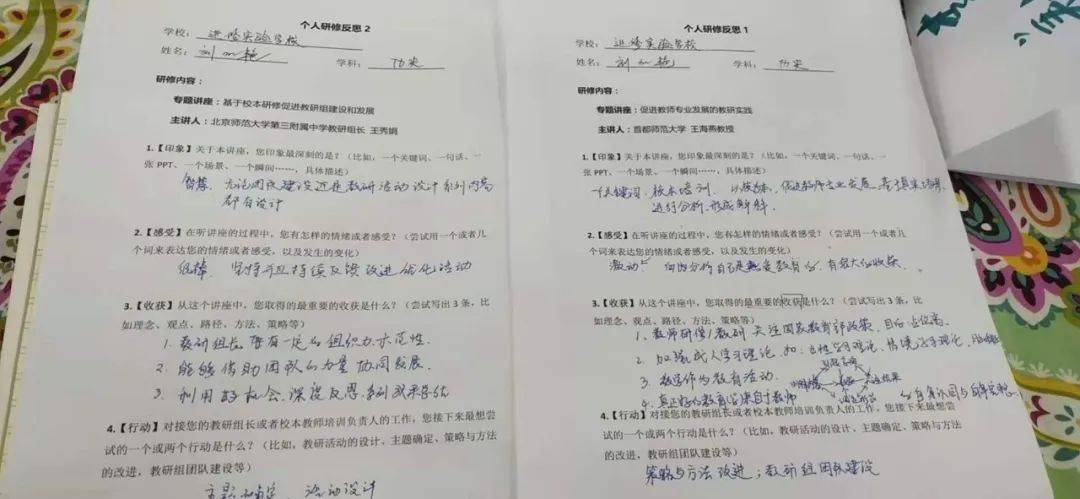 个人研修反思 2
学校：进修实验学校
姓名：刘 艳 学科：历史
研修内容：
专题讲座：基于校本研修促进教研组建设和发展
主讲人：北京师范大学第三附属中学教研组长 王秀娟
1.【印象】关于本讲座，您印象最深刻的是？（比如，一个关键词、一句话、一
张 PPT、一个场景、一个瞬间……，具体描述）
智慧. 无论团队建设还是教研活动设计 系列内容
都有设计
2.【感受】在听讲座的过程中，您有怎样的情绪或者感受？（尝试用一个或者几
个词来表达您的情绪或者感受，以及发生的变化）
很棒. 坚持并且持续反馈改进优化活动
3.【收获】从这个讲座中，您取得的最重要的收获是什么？（尝试写出 3 条，比
如理念、观点、路径、方法、策略等）
1. 教研组长要有一定的组织力.示范性.
2. 能够借助团队的力量 协同发展.
3. 利用好机会.深度反思.系列成果总结
4.【行动】对接您的教研组长或者校本教师培训负责人的工作，您接下来最想尝
试的一个或两个行动是什么？（比如，教研活动的设计、主题确定、策略与方法
的改进，教研组团队建设等）
主题确定、活动设计
个人研修反思 1
学校：进修实验学校
姓名：刘 艳 学科：历史
研修内容：
专题讲座：促进教师专业发展的教研实践
主讲人：首都师范大学 王海燕教授
1.【印象】关于本讲座，您印象最深刻的是？（比如，一个关键词、一句话、一
张 PPT、一个场景、一个瞬间……，具体描述）
关键词：校本培训. 以校为本，促进教师专业发展 基
进行分析.形成解释.
2.【感受】在听讲座的过程中，您有怎样的情绪或者感受？（尝试用一个或者几
个词来表达您的情绪或者感受，以及发生的变化）
激动 自己是 教育 有很大的收获.
3.【收获】从这个讲座中，您取得的最重要的收获是什么？（尝试写出 3 条，比
如理念、观点、路径、方法、策略等）
1. 教师研修/教研 关注国家教育部政策. 目的.
2. 加强成人学习理论. 如：学习理论、情境学习理论,
3. 教学作为教育活动.
4. 真正好的教育 来自于教师 自身认同与自身完整.
4.【行动】对接您的教研组长或者校本教师培训负责人的工作，您接下来最想尝
试的一个或两个行动是什么？（比如，教研活动的设计、主题确定、策略与方法
的改进，教研组团队建设等）
策略与方法改进；教研组团队建设